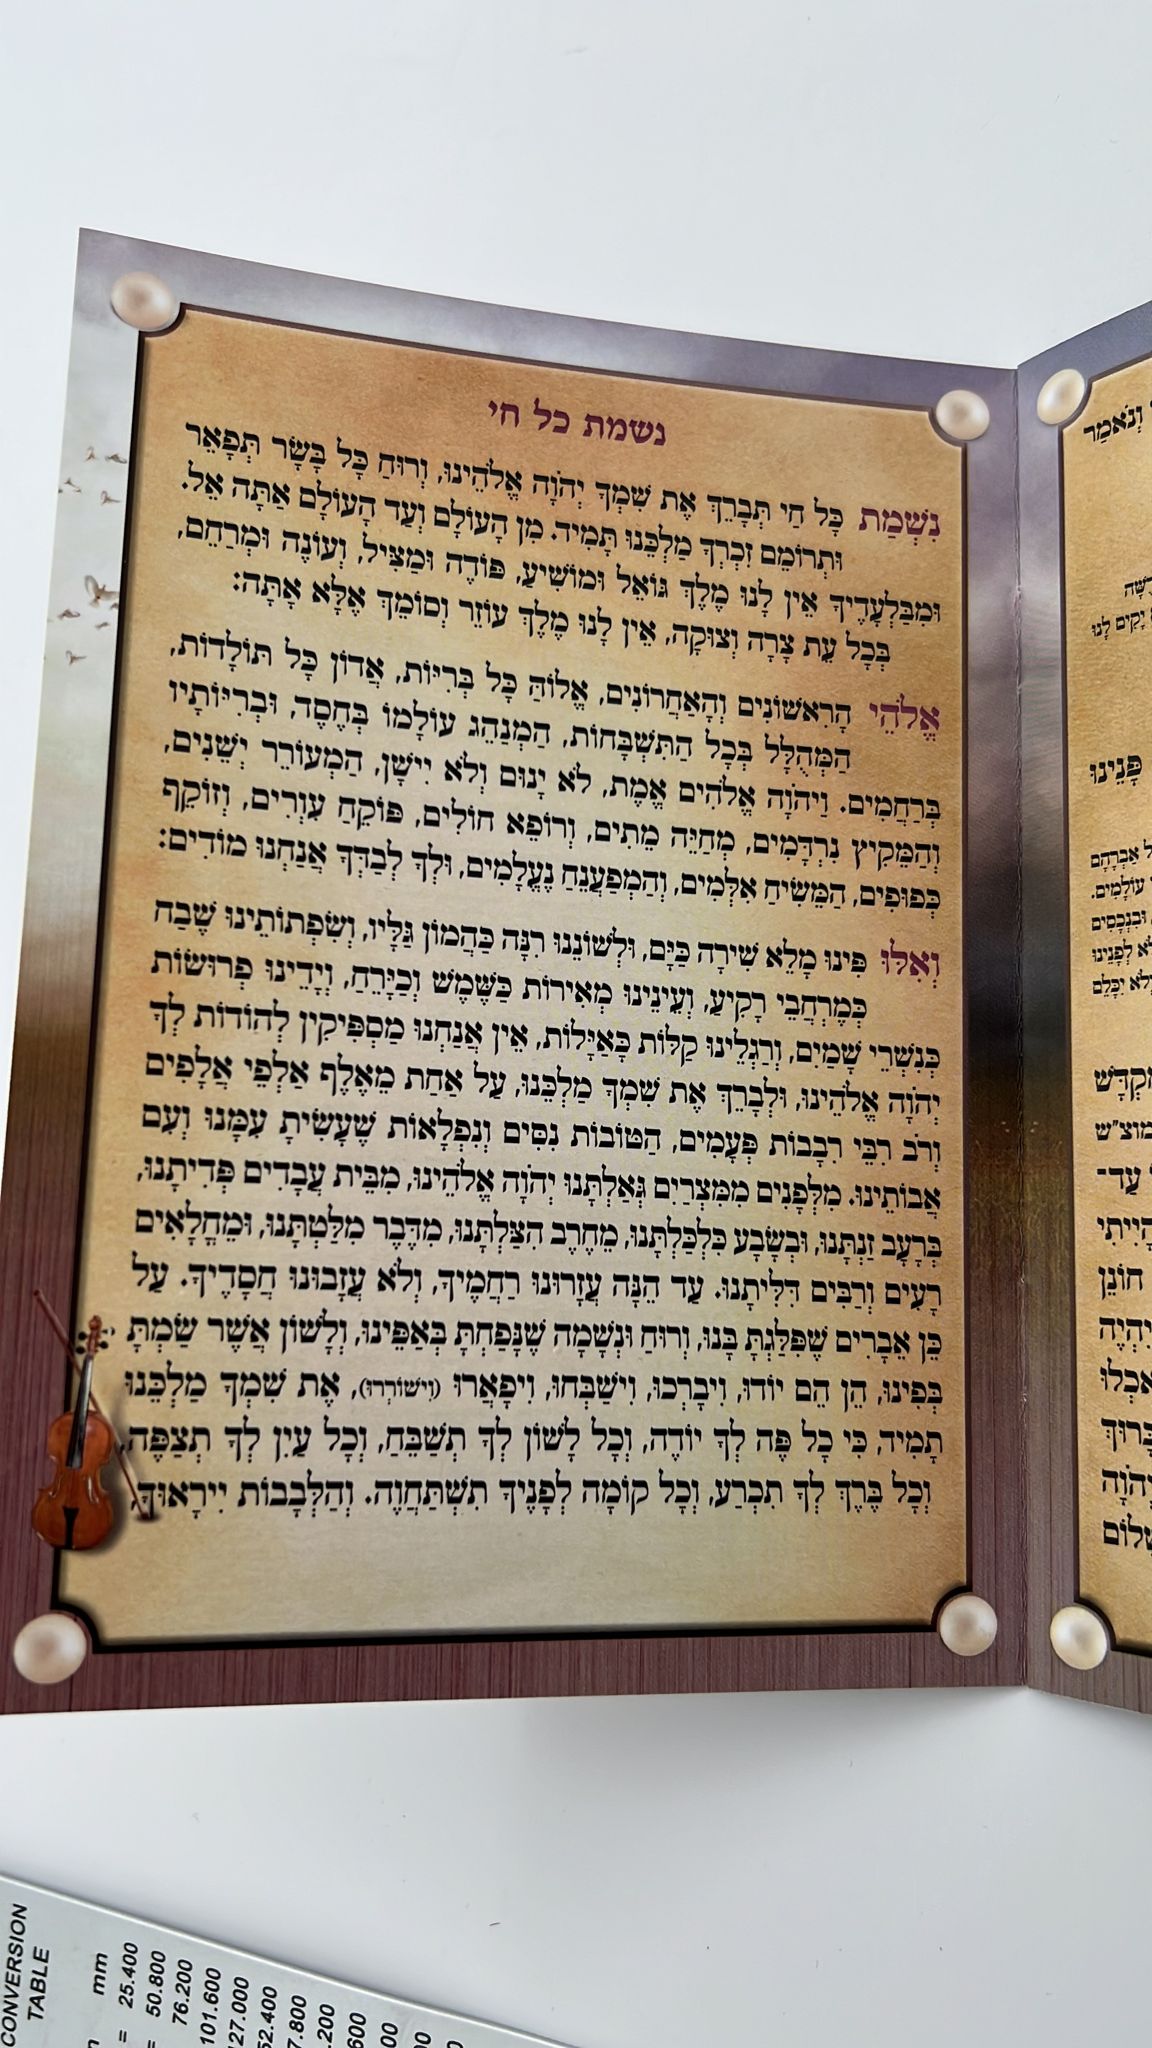 נשמת כל חי
נִשְׁמַת כָּל חַי תְּבָרֵךְ אֶת שִׁמְךָ יְהֹוָה אֱלֹהֵינוּ, וְרוּחַ כָּל בָּשָׂר תְּפָאֵר
וּתְרוֹמֵם זִכְרְךָ מַלְכֵּנוּ תָּמִיד. מִן הָעוֹלָם וְעַד הָעוֹלָם אַתָּה אֵל.
וּמִבַּלְעָדֶיךָ אֵין לָנוּ מֶלֶךְ גּוֹאֵל וּמוֹשִׁיעַ, פּוֹדֶה וּמַצִּיל, וְעוֹנֶה וּמְרַחֵם,
בְּכָל עֵת צָרָה וְצוּקָה, אֵין לָנוּ מֶלֶךְ עוֹזֵר וְסוֹמֵךְ אֶלָּא אָתָּה:
אֱלֹהֵי הָרִאשׁוֹנִים וְהָאַחֲרוֹנִים, אֱלוֹהַּ כָּל בְּרִיּוֹת, אֲדוֹן כָּל תּוֹלָדוֹת,
הַמְּהֻלָּל בְּכָל הַתִּשְׁבָּחוֹת, הַמְנַהֵג עוֹלָמוֹ בְּחֶסֶד, וּבְרִיּוֹתָיו
בְּרַחֲמִים. וַיהֹוָה אֱלֹהִים אֱמֶת, לֹא יָנוּם וְלֹא יִישָׁן, הַמְעוֹרֵר יְשֵׁנִים,
וְהַמֵּקִיץ נִרְדָּמִים, מְחַיֵּה מֵתִים, וְרוֹפֵא חוֹלִים, פּוֹקֵחַ עִוְרִים, וְזוֹקֵף
כְּפוּפִים, הַמֵּשִׂיחַ אִלְּמִים, וְהַמְפַעֲנֵחַ נֶעֱלָמִים, וּלְךָ לְבַדְּךָ אֲנַחְנוּ מוֹדִים:
וְאִלּוּ פִינוּ מָלֵא שִׁירָה כַיָּם, וּלְשׁוֹנֵנוּ רִנָּה כַּהֲמוֹן גַּלָּיו, וְשִׂפְתוֹתֵינוּ שֶׁבַח
כְּמֶרְחֲבֵי רָקִיעַ, וְעֵינֵינוּ מְאִירוֹת כַּשֶּׁמֶשׁ וְכַיָּרֵחַ, וְיָדֵינוּ פְרוּשׂוֹת
כְּנִשְׁרֵי שָׁמָיִם, וְרַגְלֵינוּ קַלּוֹת כָּאַיָּלוֹת, אֵין אֲנַחְנוּ מַסְפִּיקִין לְהוֹדוֹת לְךָ
יְהֹוָה אֱלֹהֵינוּ, וּלְבָרֵךְ אֶת שִׁמְךָ מַלְכֵּנוּ, עַל אַחַת מֵאֶלֶף אַלְפֵי אֲלָפִים
וְרֹב רִבֵּי רְבָבוֹת פְּעָמִים, הַטּוֹבוֹת נִסִּים וְנִפְלָאוֹת שֶׁעָשִׂיתָ עִמָּנוּ וְעִם
אֲבוֹתֵינוּ. מִלְּפָנִים מִמִּצְרַיִם גְּאַלְתָּנוּ יְהֹוָה אֱלֹהֵינוּ, מִבֵּית עֲבָדִים פְּדִיתָנוּ,
בְּרָעָב זַנְתָּנוּ, וּבְשָׂבָע כִּלְכַּלְתָּנוּ, מֵחֶרֶב הִצַּלְתָּנוּ, מִדֶּבֶר מִלַּטְתָּנוּ, וּמֵחֳלָאִים
רָעִים וְרַבִּים דִּלִּיתָנוּ. עַד הֵנָּה עֲזָרוּנוּ רַחֲמֶיךָ, וְלֹא עֲזָבוּנוּ חֲסָדֶיךָ. עַל
כֵּן אֵבָרִים שֶׁפִּלַּגְתָּ בָּנוּ, וְרוּחַ וּנְשָׁמָה שֶׁנָּפַחְתָּ בְּאַפֵּינוּ, וְלָשׁוֹן אֲשֶׁר שַׂמְתָּ
בְּפִינוּ, הֵן הֵם יוֹדוּ, וִיבָרְכוּ, וִישַׁבְּחוּ, וִיפָאֲרוּ (וישוררו), אֶת שִׁמְךָ מַלְכֵּנוּ
תָמִיד, כִּי כָל פֶּה לְךָ יוֹדֶה, וְכָל לָשׁוֹן לְךָ תְשַׁבֵּחַ, וְכָל עַיִן לְךָ תְצַפֶּה,
וְכָל בֶּרֶךְ לְךָ תִכְרַע, וְכָל קוֹמָה לְפָנֶיךָ תִשְׁתַּחֲוֶה. וְהַלְּבָבוֹת יִירָאוּךָ,
וְנֹאמַר
יָקִים לָנוּ
פָּנֵינוּ
אַבְרָהָם
עוֹלָמִים.
וּבִנְכָסִים
לְפָנֵינוּ
מוצ"ש
עַד־
הָיִיתִי
חוֹנֵן
יִהְיֶה
בָּרוּךְ
יְהֹוָה
שָׁלוֹם
CONVERSION
TABLE
mm
= 25.400
= 50.800
76.200
101.600
127.000